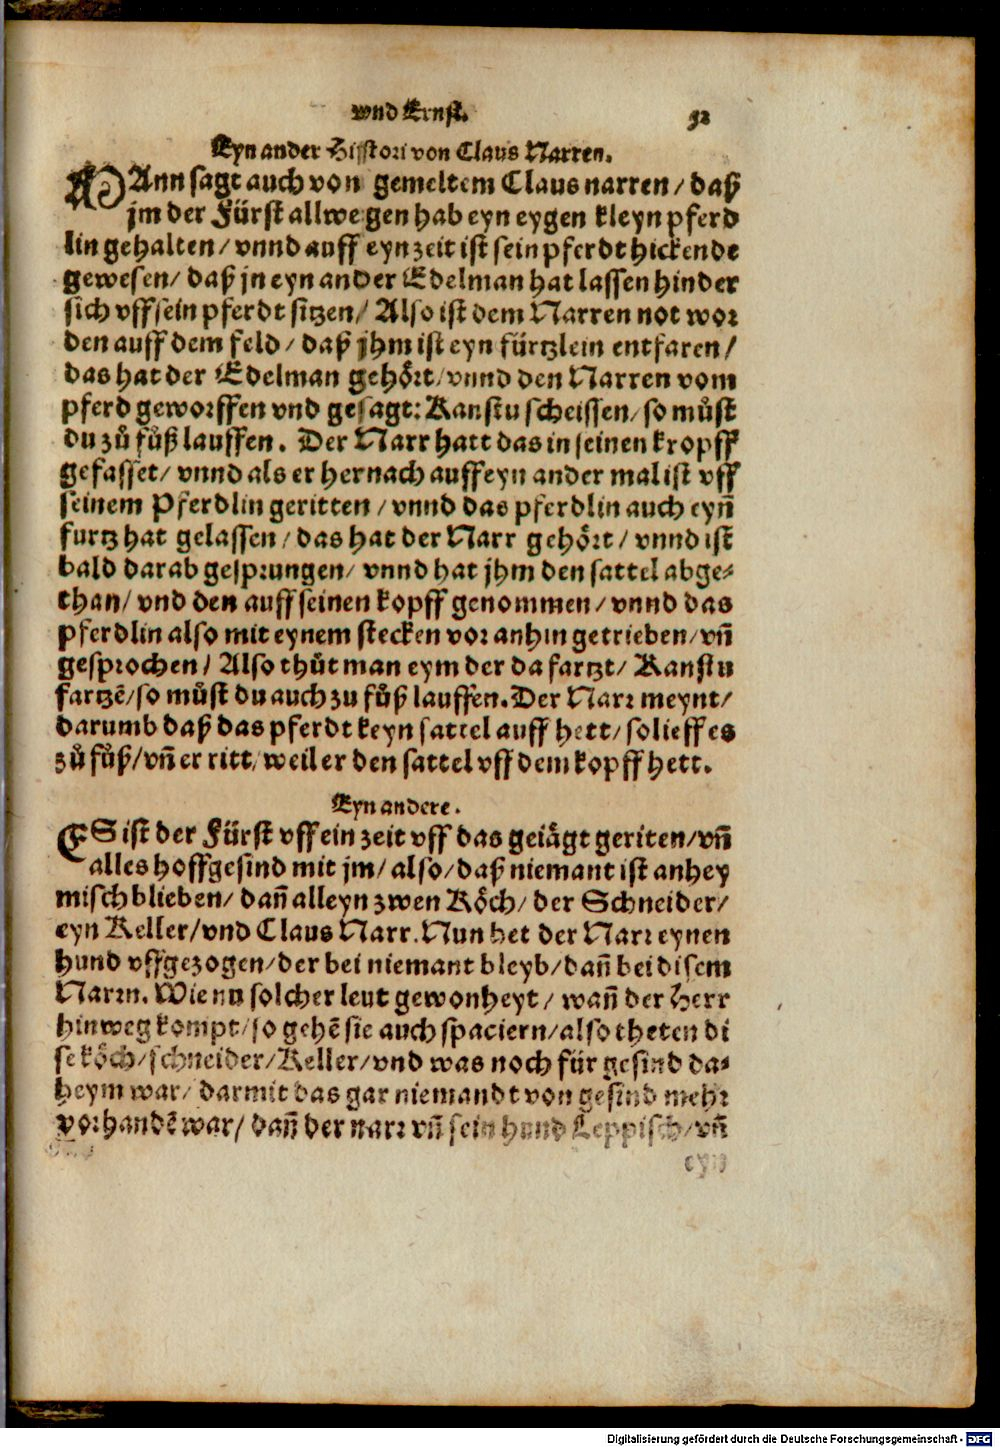 vnd Ernst. 52
Eyn ander Hystori von Claus Narren.
MAnn sagt auch von gemeltem Claus narren / daß
jm der Fürst allwegen hab eyn eygen kleyn pferd
lin gehalten / vnnd auff eyn zeit ist sein pferdt hickende
gewesen / daß jn eyn ander Edelman hat lassen hinder
sich vff sein pferdt sitzen / Also ist dem Narren not wor
den auff dem feld / daß jhm ist eyn fürtzlein entfaren /
das hat der Edelman gehoͤrt / vnnd den Narren vom
pferd geworffen vnd gesagt: Kanstu scheissen / so muͦst
du zuͦ fuͦß lauffen. Der Narr hatt das in seinen kropff
gefasset / vnnd als er hernach auff eyn ander mal ist vff
seinem Pferdlin geritten / vnnd das pferdlin auch eyn̄
furtz hat gelassen / das hat der Narr gehoͤrt / vnnd ist
bald darab gesprungen / vnnd hat jhm den sattel abge-
than / vnd den auff seinen kopff genommen / vnnd das
pferdlin also mit eynem stecken vor anhin getrieben / vn̄
gesprochen / Also thuͦt man eym der da fartzt / Kanstu
fartzē / so muͦst du auch zu fuͦß lauffen. Der Narr meynt /
darumb daß das pferdt keyn sattel auff hett / so lieff es
zuͦ fuͦß / vn̄ er ritt / weil er den sattel vff dem kopff hett.
Eyn andere.
ES ist der Fürst vff ein zeit vff das geiaͤgt geriten / vn̄
alles hoffgesind mit jm / also / daß niemant ist anhey
misch blieben / dan̄ alleyn zwen Koͤch / der Schneider /
eyn Keller / vnd Claus Narr. Nun het der Narr eynen
hund vffgezogen / der bei niemant bleyb / dan̄ bei disem
Narrn. Wie nu solcher leut gewonheyt / wan̄ der Herr
hinweg kompt / so gehē sie auch spaciern / also theten di
se koͤch / schneider / Keller / vnd was noch für gesind da-
heym war / darmit das gar niemandt von gesind mehr
vorhandē war / dan̄ der narr vn̄ sein hund Leppisch / vn̄
eyn
Digitalisierung gefördert durch die Deutsche Forschungsgemeinschaft - DFG